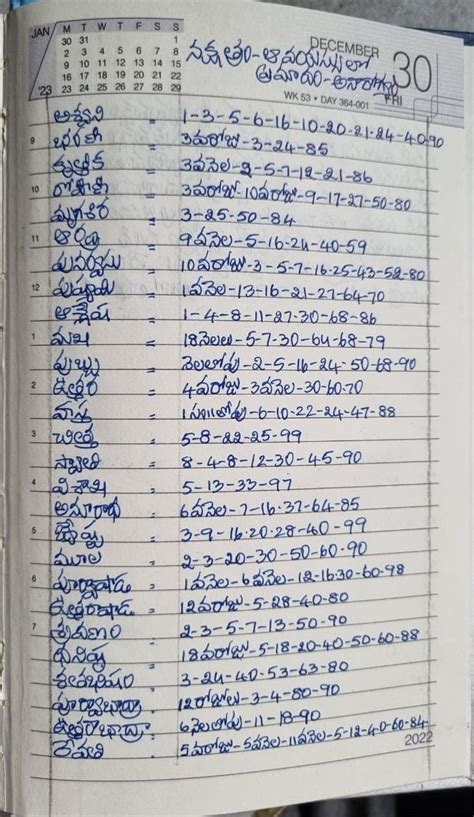 JAN
M T W T F S S
30 31 1
2 3 4 5 6 7 8
9 10 11 12 13 14 15
16 17 18 19 20 21 22
'23 23 24 25 26 27 28 29
DECEMBER
30
WK 53 • DAY 364-001 FRI
నక్షత్రం - ఆ వయస్సులో
ప్రమాదం - అనారోగ్యం
అశ్వని = 1-3-5-6-16-10-20-21-24-40-90
9
భరణి = 3వరోజు-3-24-85
కృత్తిక = 3వనెల-2-5-7-12-21-86
10
రోహిణి = 3వరోజు-10వరోజు-9-17-27-50-80
మృగశిర = 3-25-50-84
11
ఆరుద్ర = 9వనెల-5-16-24-40-59
పునర్వసు = 10వరోజు-3-5-7-16-25-43-52-80
12
పుష్యమి = 1వనెల-13-16-21-27-64-70
ఆశ్లేష = 1-4-8-11-27-30-68-86
1
మఖ = 18నెలలు-5-7-30-64-68-79
పుబ్బ = నెలలోపు-2-5-16-24-50-68-90
2
ఉత్తర = 4వరోజు-3వనెల-30-60-70
హస్త = 1సం॥లోపు-6-10-22-24-47-88
3
చిత్త = 5-8-22-25-99
స్వాతి = 8-4-8-12-30-45-90
4
విశాఖ = 5-13-33-97
అనూరాధ = 6వనెల-7-16-37-64-85
5
జ్యేష్ట = 3-9-16-20-28-40-99
మూల = 2-3-20-30-50-60-90
6
పూర్వాషాడ = 1వనెల-6వనెల-12-16-30-60-98
ఉత్తరాషాడ = 12వరోజు-5-28-40-80
7
శ్రవణం = 2-3-5-7-13-50-90
ధనిష్ట = 18వరోజు-5-18-20-40-50-60-88
శతభిషం = 3-24-40-53-63-80
పూర్వాభాద్ర = 12రోజులు-3-4-80-90
ఉత్తరాభాద్ర = 6నెలలోపు-11-18-90
రేవతి = 5వరోజు-5వనెల-11వనెల-5-12-40-60-84
2022